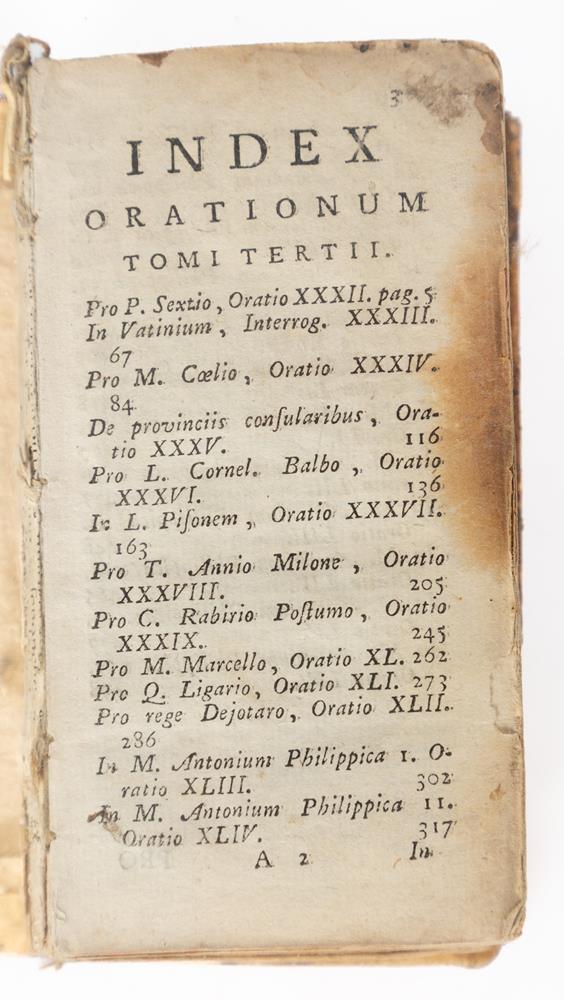 3
INDEX
ORATIONUM
TOMI TERTII.
Pro P. Sextio, Oratio XXXII. pag. 5
In Vatinium, Interrog. XXXIII.
67
Pro M. Cœlio, Oratio XXXIV.
84
De provinciis conſularibus, Ora-
tio XXXV. 116
Pro L. Cornel. Balbo, Oratio
XXXVI. 136
In L. Piſonem, Oratio XXXVII.
163
Pro T. Annio Milone, Oratio
XXXVIII. 205
Pro C. Rabirio Poſtumo, Oratio
XXXIX. 245
Pro M. Marcello, Oratio XL. 262
Pro Q. Ligario, Oratio XLI. 273
Pro rege Dejotaro, Oratio XLII.
286
In M. Antonium Philippica 1. O-
ratio XLIII. 302
In M. Antonium Philippica 11.
Oratio XLIV. 317
A 2 In